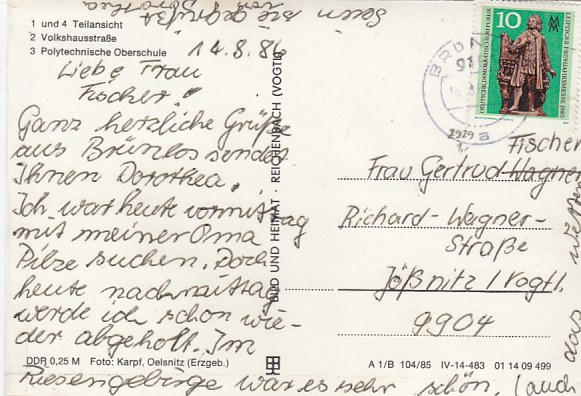 1 und 4 Teilansicht
2 Volkshausstraße
3 Polytechnische Oberschule
14.8.86
Liebe Frau
Fischer!
Ganz herzliche Grüße
aus Brünlos sendet
Ihnen Dorothea.
Ich war heute vormittag
mit meiner Oma
Pilze suchen. Doch
heute nachmittag
werde ich schon wie-
der abgeholt. Im
Riesengebirge war es sehr schön, (auch
das
Seien Sie gegrüßt
von Dorothea
BILD UND HEIMAT · REICHENBACH (VOGTL)
10
DEUTSCHE DEMOKRATISCHE REPUBLIK
LEIPZIGER FRÜHJAHRSMESSE 1985
BRÜN
a
Fischer
Frau Gertrud Wagner
Richard-Wagner-
Straße
Jößnitz/Vogtl.
9904
DDR 0,25 M Foto: Karpf, Oelsnitz (Erzgeb.)
A 1/B 104/85 IV-14-483 01 14 09 499